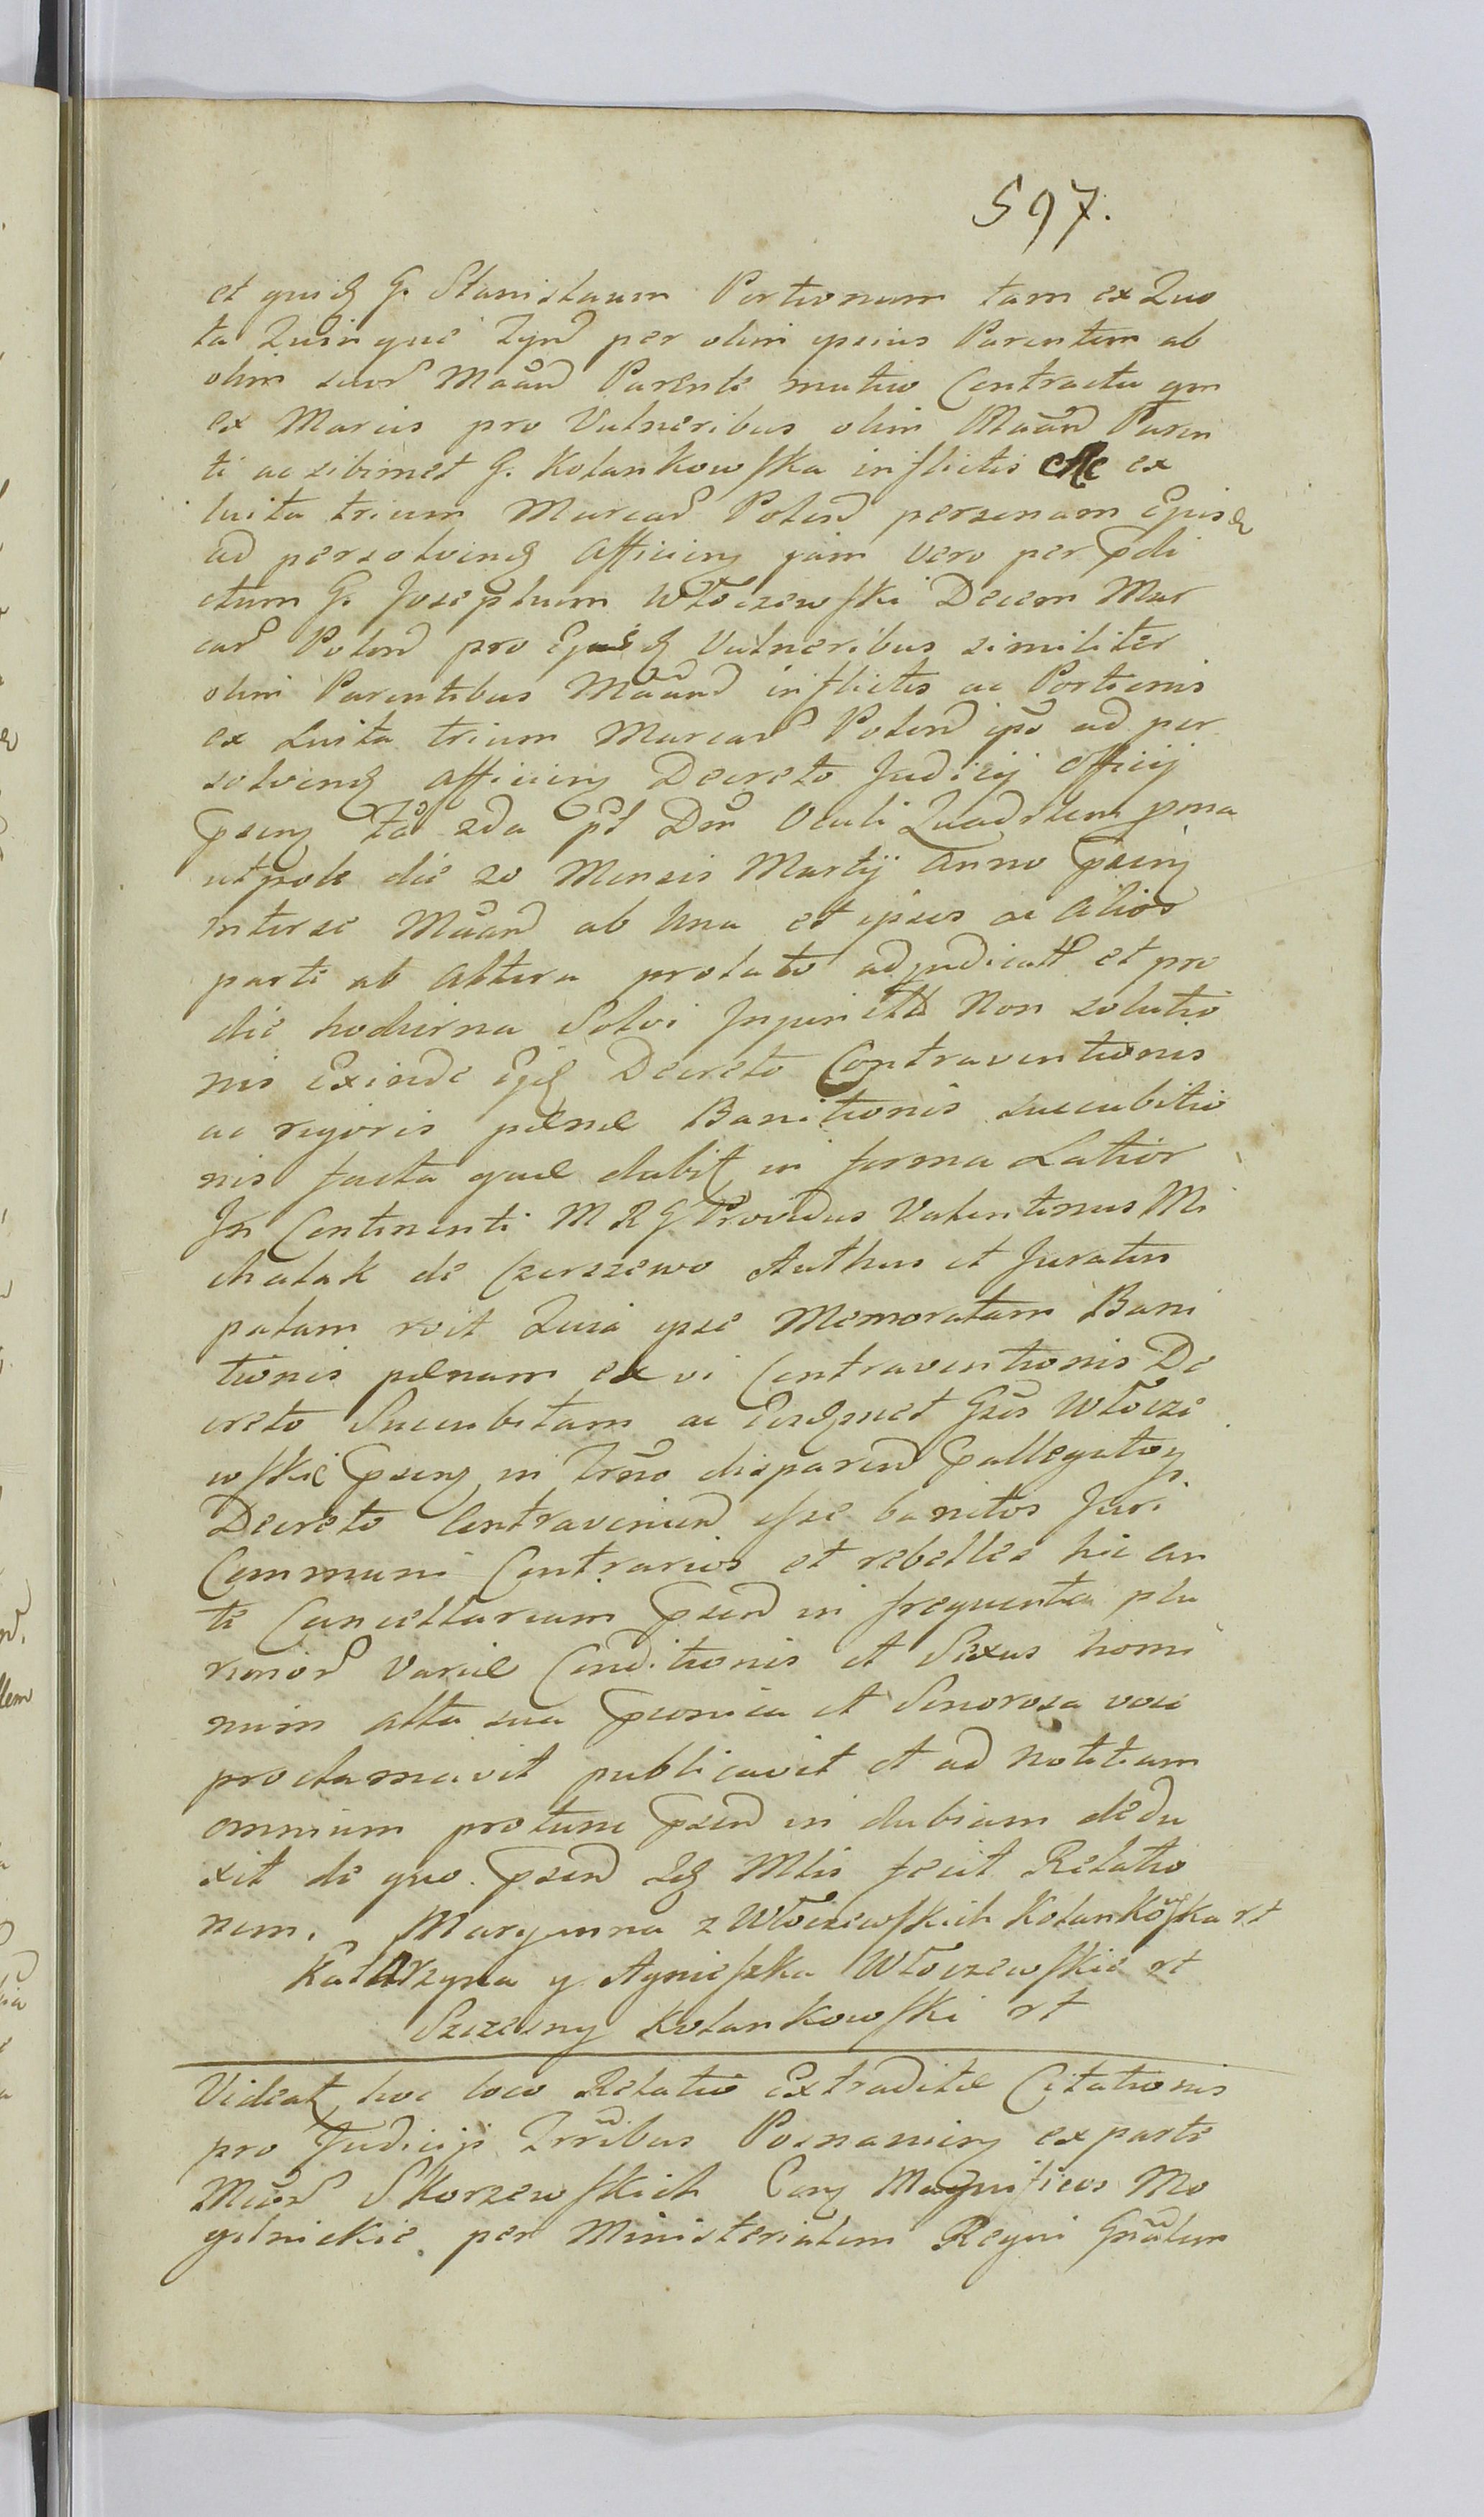 597.
et quidem G. Stanislaum Portionum tam ex Quo
ta Quinque per olim ipsius Parentem ab
olim suor Mäand Parente mutuo Contractu qm
ex Marcis pro Vulneribus olim Mäand Paren
ti ac sibimet G. Kolankowska inflictis ex
luita trium Marcar Polend personam Ejusd
ad persolvend afficien jam vero per pdi
ctum G. Josephum Włoczewski Decem Mar
car Polend pro Ejusd Vulneribus similiter
olim Parentibus Mäand inflictis ac Portionis
ex Luita trium Marcar Polend ipso ad per
solvend afficien Decreto Judicij Officij
psens fa 2da pt Dm Oculi Quadrlem pma
utpote die 20 Mensis Martij anno psens
inter se Mäand ab una et ipsos ac alios
parte ab altera prolato adjudicatt et pro
die hodierna Solvi Injunctt Non solutio
nis Exinde Ejd Decreto Contraventionis
ac rigoris pœnæ Banitionis succubitio
nis facta quæ dabit in forma Latior
In Continenti M R G Providus Valentinus Mi
chalak de Czerszewo Authus et Juratus
palam rcit Quia ipse Memoratam Bani
tionis pœnam ex vi Contraventionis De
creto Succubitam ac Eosdmet Gsos Włocze
wskie psens in Trno disparend pallegaton
Decreto Contravenien esse banitos Juri
Communi Contrarios et rebelles hic an
te Cancellariam psend in frequentia plu
rimor variæ Conditionis et Sexus homi
num alta sua pconica et Sonorosa voce
proclamavit publicavit et ad Notitiam
omnium protunc psend in dubiam dedu
xit de quo psend sd Mlis fecit Relatio
nem. Maryanna z Włoczewskich Kolankoska rt
Katarzyna y Agnieszka Włoczewskie rt
Szczesny Kolankowski rt
Videat hoc loco Relatio Extraditæ Citationis
pro Judicijs Trrribus Posnanien ex parte
Mcor Skorzewskich Con Magnificos Mo
gilnickie per Ministerialem Regni Gnälem